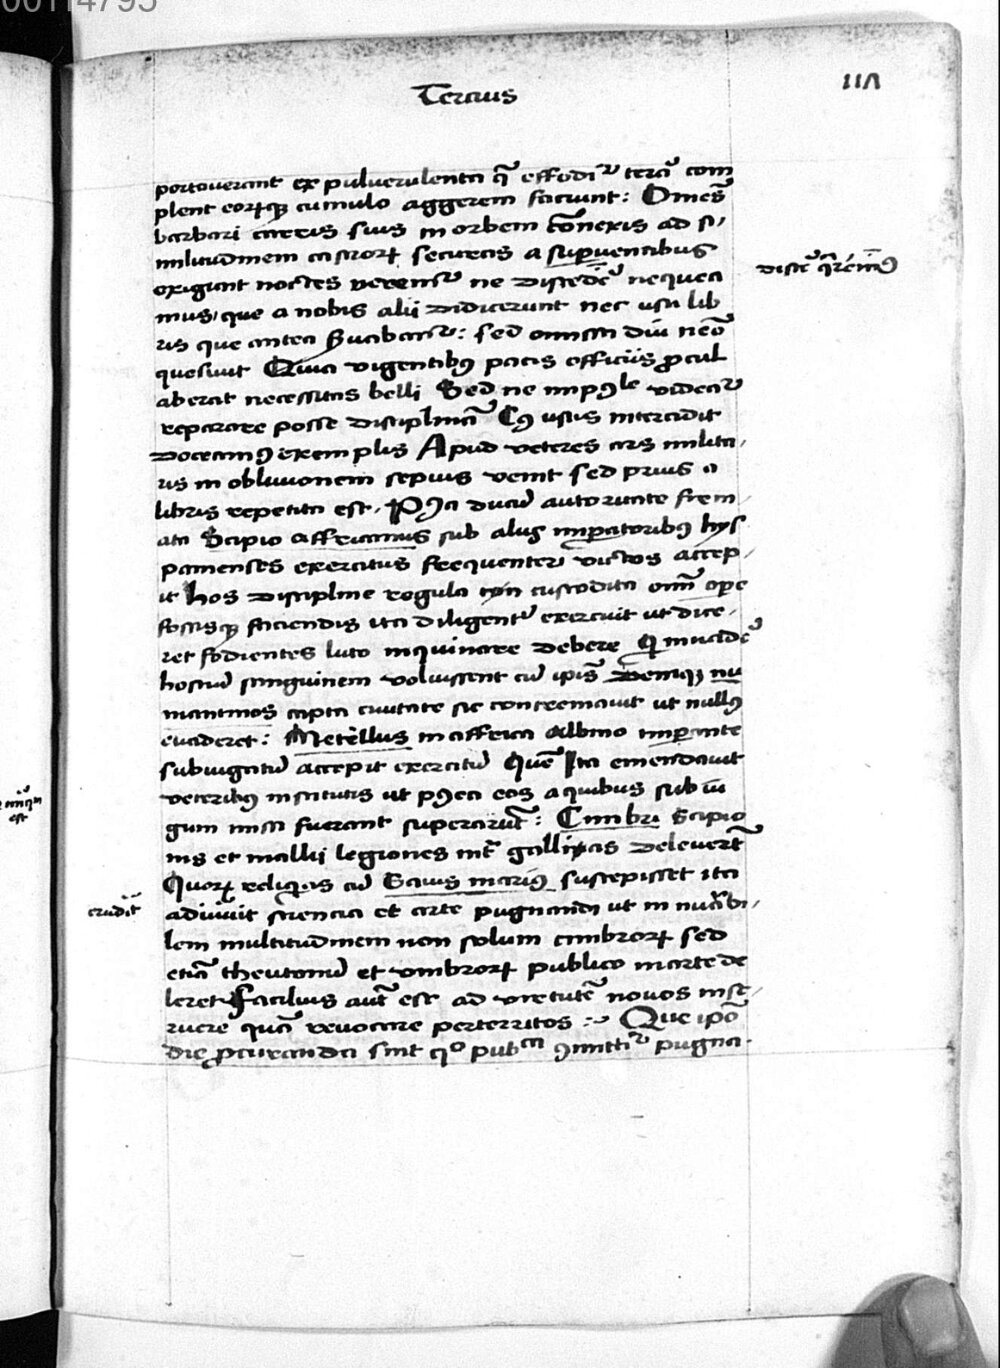 00114795
Tercius
portauerant ex puluerulenta q̄ effoditᷣ terrā com
plent eorꝝqꝫ cumulo aggerem faciunt: Omēs
barbari carris suis in orbem cōnexis ad si,
militudinem castrorꝝ securas a superuentibus
exigunt noctes veremᷣ ne discedeᷣ nequea
mus, que a nobis alii didicerunt nec usu lib
ris que antea seruabantᷣ: sed omissa diu nemō
quesiuit Quia vigentibꝰ pacis officiis ꝓcul
aberat necessitas belli Sed ne imposs̄le videatᷣ
reparare posse disciplinā Cꝰ usus intercidit
Doceamꝰ exemplis Apud veteres ars milita,
ris in obliuionem sepius venit sed prius a
libris repetita est, Pꝰea ducū autoritate firm,
ata Scipio affricanus sub aliis imperatoribꝰ hys
panienses exercitus frequenter victos accep,
it Hos discipline regula custodita om̄i ope
fossisqꝫ faciendis ita diligentᷣ exercuit ut dice,
ret fodientes luto inquinare debere Q̄ madeᷣe
hostiū sanguinem voluissent cū ipīs Deniqꝫ nu
mantinos capta ciuitate sic concremauit ut nullꝰ
euaderet: Metellus in affrica Albino imperante
subiugatū accepit exercitū Quē Ita emendauit
veteribꝰ institutis ut pꝰea eos a quibus sub iu
gum missi fuerant superarūt: Cimbri Scipio
nis et mallii legiones int̄ gallias deleuert̄
Quorꝝ reliqᵃs cū Gaius mariꝰ suscepisset ita
adiuuit sciencia et arte pugnandi ut innuᵃbi,
lem multitudinem non solum cimbrorꝝ sed
etiā theutonū et vmbrorꝝ publico marte de
leret Facilius aut̄ est ad virtutē nouos inst,
ruere quā reuocare perterritos :~ Que ipō
die ꝓcuranda sint qᵒ pubᶜᵃ ꝯmittitᷣ pugna.
erudit̄
est